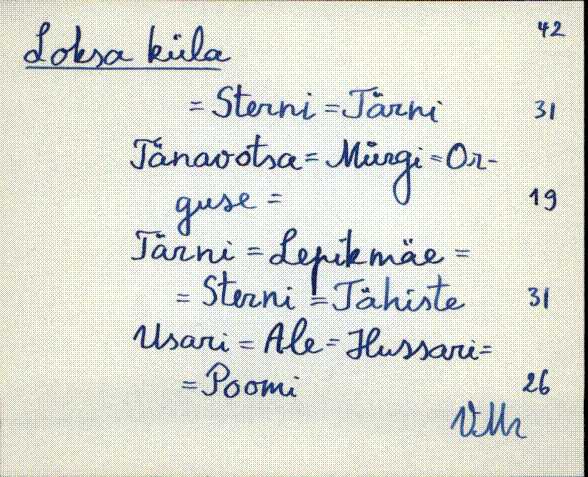 42
Loksa küla
= Sterni = Tärni 31
Tänavotsa = Mürgi = Or-
guse = 19
Tärni = Lepikmäe =
= Sterni = Tähiste 31
Usari = Ale = Hussari =
= Poomi 26